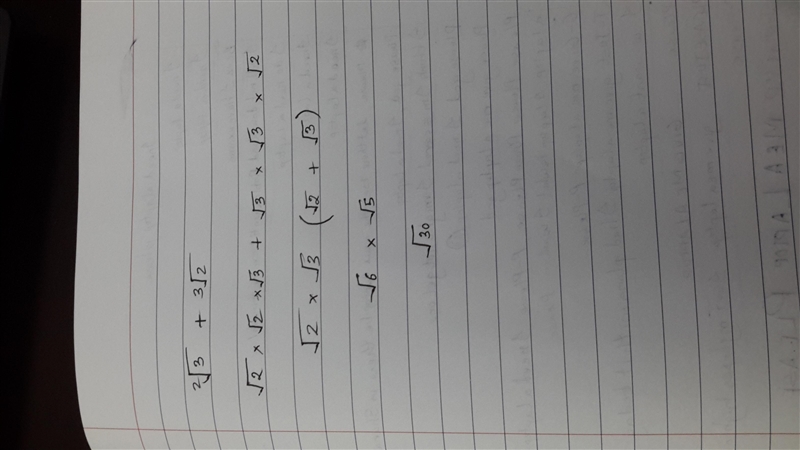 2√3 + 3√2
√2 × √2 × √3 + √3 × √3 × √2
√2 × √3 (√2 + √3)
√6 × √5
√30